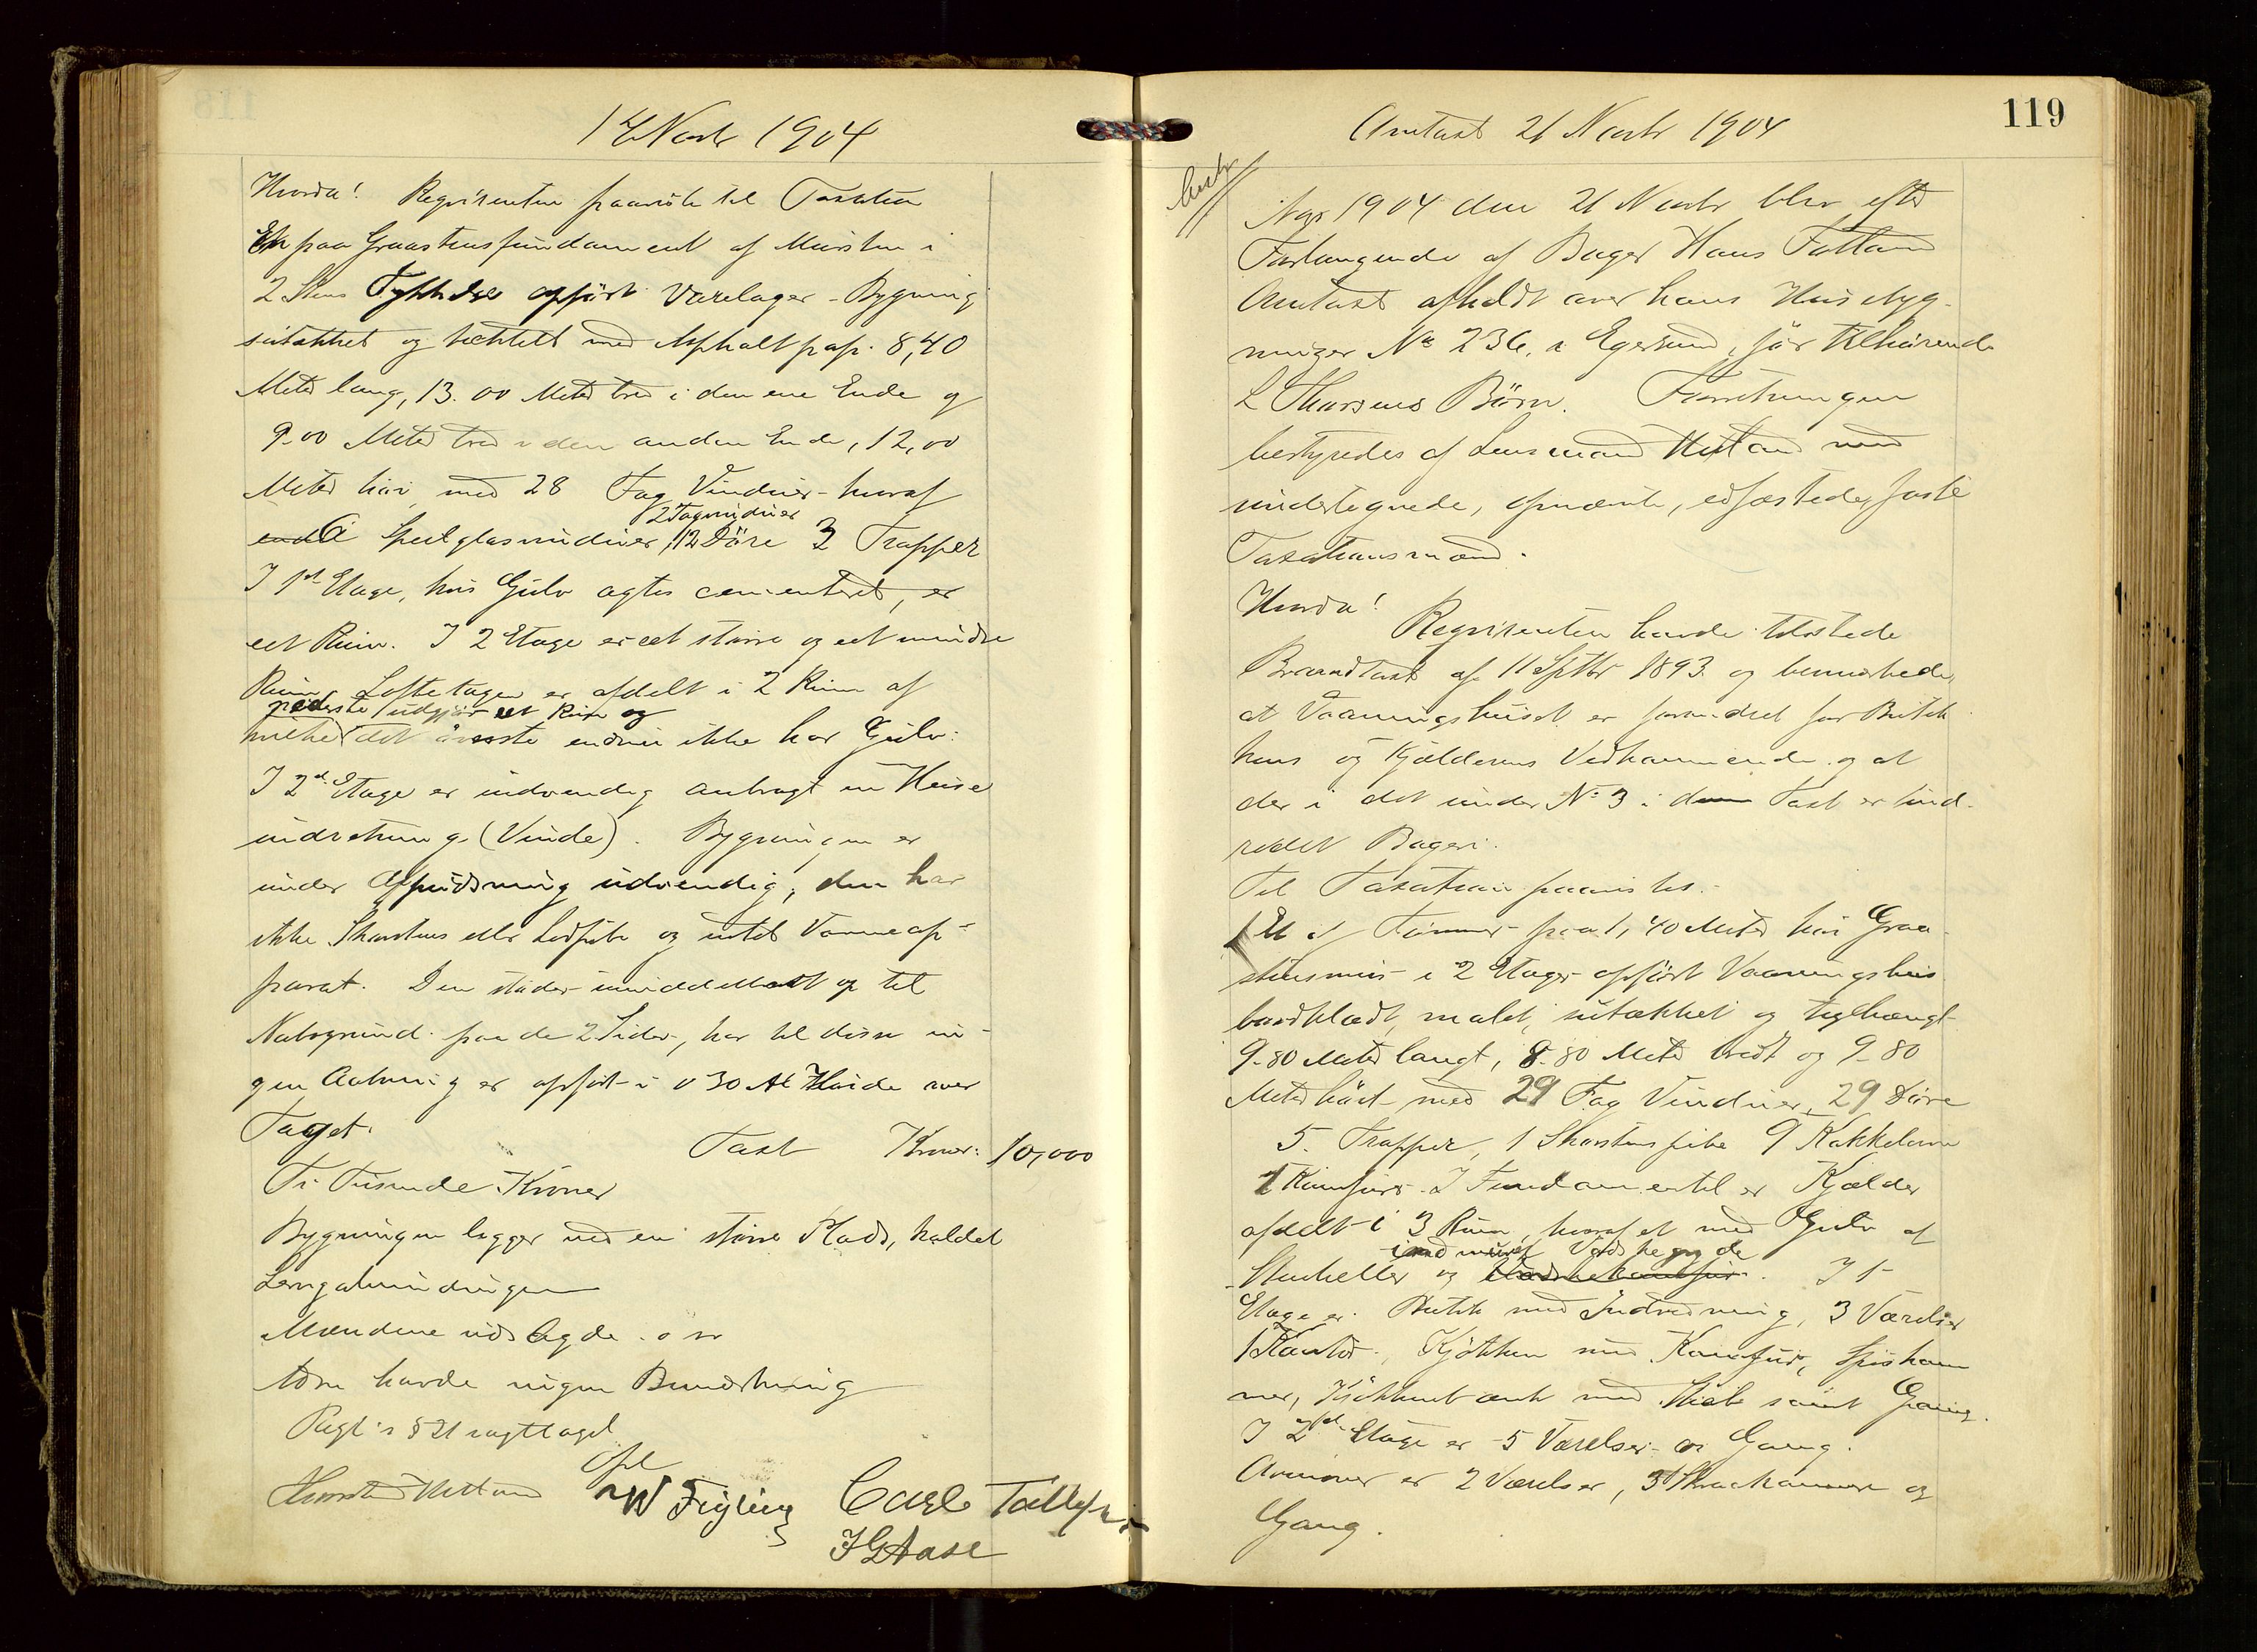 17 Novbr 1904
Hvorda! Reqvirenten paaviste til Taxation
En paa Graastensfundament af Mursten i
2 Stens Tykkelse opført Varelager-Bygning
sutækket og tæktett med Asphaltpap. 8,40
Meter lang, 13.00 Meter bred i den ene Ende og
9.00 Meter bred i den anden Ende, 12,00
Meter høi med 28 Fag Vinduer - hvoraf
2 Tagvinduer
Speilglasvinduer, 12 Døre 3 Trapper
I 1st Etage, hvis Gulv agtes cementeret, er
eet Rum. I 2 Etage er eet større og eet mindre
Rum. Loftetagen er afdelt i 2 Rum af
nederste udgjør eet Rum og
hvilke det øverste endnu ikke har Gulv.
I 2d Etage er indvendig anbragt en Heise
indretning (Vinde). Bygningen er
under Afpudsning udvendig, den har
ikke Skorstens eller Ledpibe og intet Varmeap-
parat. Den støder umiddelbart op til
Nabogrund paa de 2 Sider, har til disse in-
gen Aabning er opført i 0.30 M Høide over
Taget.
Taxt Kroner: 10,000
Ti Tusinde Kroner
Bygningen ligger ved en større Plads, kaldet
Lervgalmindingen
Mændene udsagde o sv
Adm havde ingen Bemærkning
Regl's § 21 iagttaget
Opl
Thorsten Hetland W Feyling Carl Tollefsen
J G Aase
119
Omtaxt 21 Novbr 1904
Aar 1904 den 21 Novbr blev efter
Forlangende af Bager Hans Fotland
Omtaxt afholdt over hans Husbyg-
ninger No 236, i Egersund, før tilhørende
L Thorsens Børn. Forretningen
bestyredes af Lensmand Hetland med
undertegnede, opnævnte, edfæstede faste
Taxationsmænd.
Hvorda!
Reqvirenten havde tilstede
Brandtaxt af 11 Septbr 1893 og bemærkede,
at Vaaningshuset er forandret for Butik
hens og Kjælderens Vedkommende og at
der i det under No 3 i denne Taxt er ind-
redet Bageri.
Til Taxation paavistes:
1 Et af Tømmer paa 1,40 Meter høi Graa-
stensmur i 2 Etager opført Vaaningshus
bordklædt, malet, sutækket og teglhængt
9.80 Meter langt, 8.80 Meter bredt og 9.80
Meter høit med 29 Fag Vinduer, 29 Døre
5 Trapper, 1 Skorstenspibe 9 Kakkelovne
1 Komfur. I Fundamentet er Kjælder
afdelt i 3 Rum, hvoraf et med Gulv af
indmuret Vadskegryde
Stenheller og. I 1
Etage er Butik med Indredning, 3 Værelser
1 Kontor, Kjøkken med Komfur, Spiskam
mer, Kjøkkenbænk med Skab samt Gang.
I 2den Etage er 5 Værelser og Gang.
Ovenover er 2 Værelser, 3 Skraakammere og
Gang.